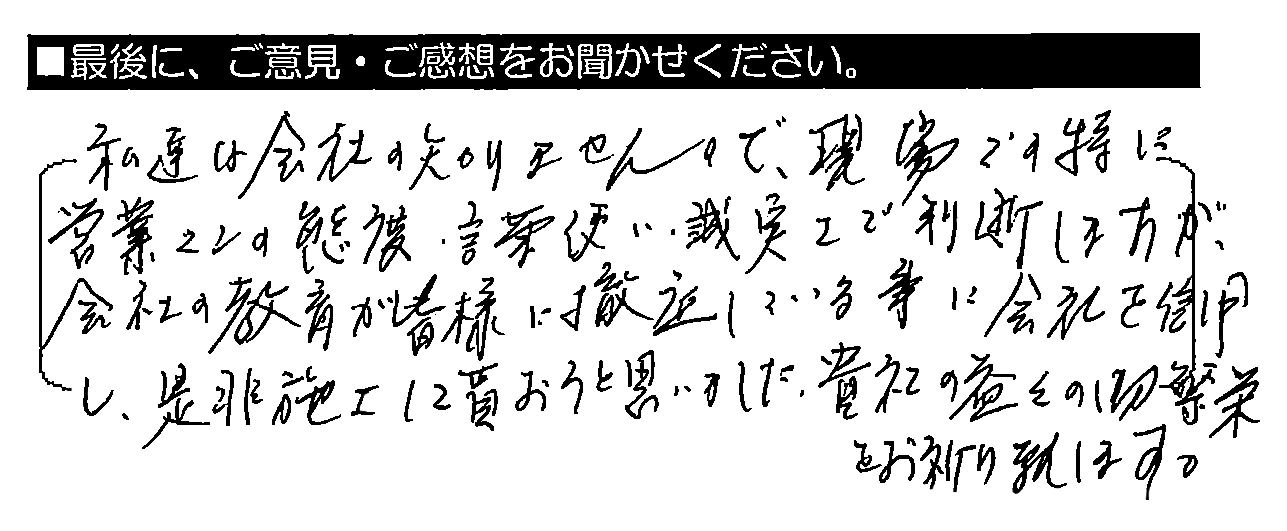 ■最後に、ご意見・ご感想をお聞かせください。
私達は会社の矢知りませんので、現場での特に
営業マンの態度・言葉使い・誠実さで判断します方が、
会社の教育が皆様に徹底している事に会社を信用
し、是非施工して貰おうと思いました。貴社の益々の御繁栄
をお祈り致します。